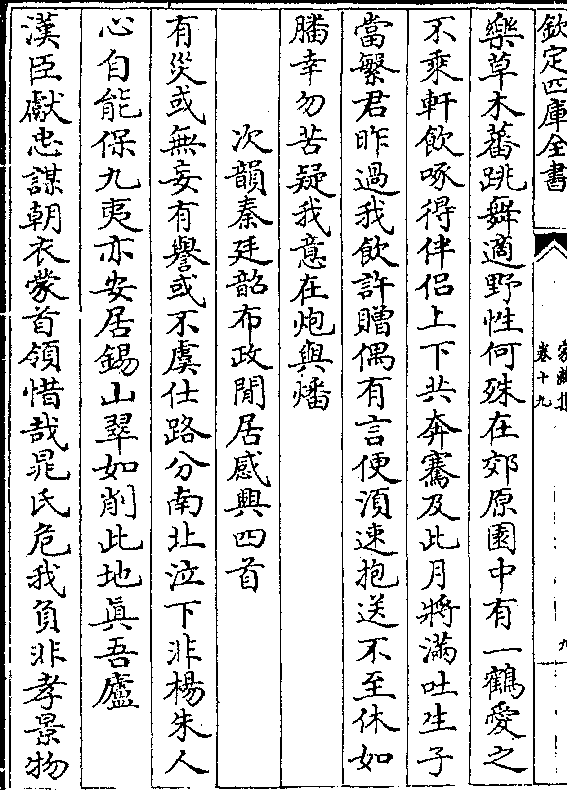 欽定四庫全書
家藏集
卷十九
九
樂草木蕃跳舞適野性何殊在郊原園中有一鶴愛之
不乘軒飲啄得伴侶上下共奔騫及此月將滿吐生子
當繁君昨過我飲許贈偶有言便湏速抱送不至休如
膰幸勿苦疑我意在炮與燔
次韻秦廷韶布政閒居感興四首
有災或無妄有譽或不虞仕路分南北泣下非楊朱人
心自能保九夷亦安居錫山翠如削此地眞吾廬
漢臣獻忠謀朝衣蒙首領惜哉晁氏危我負非孝景物